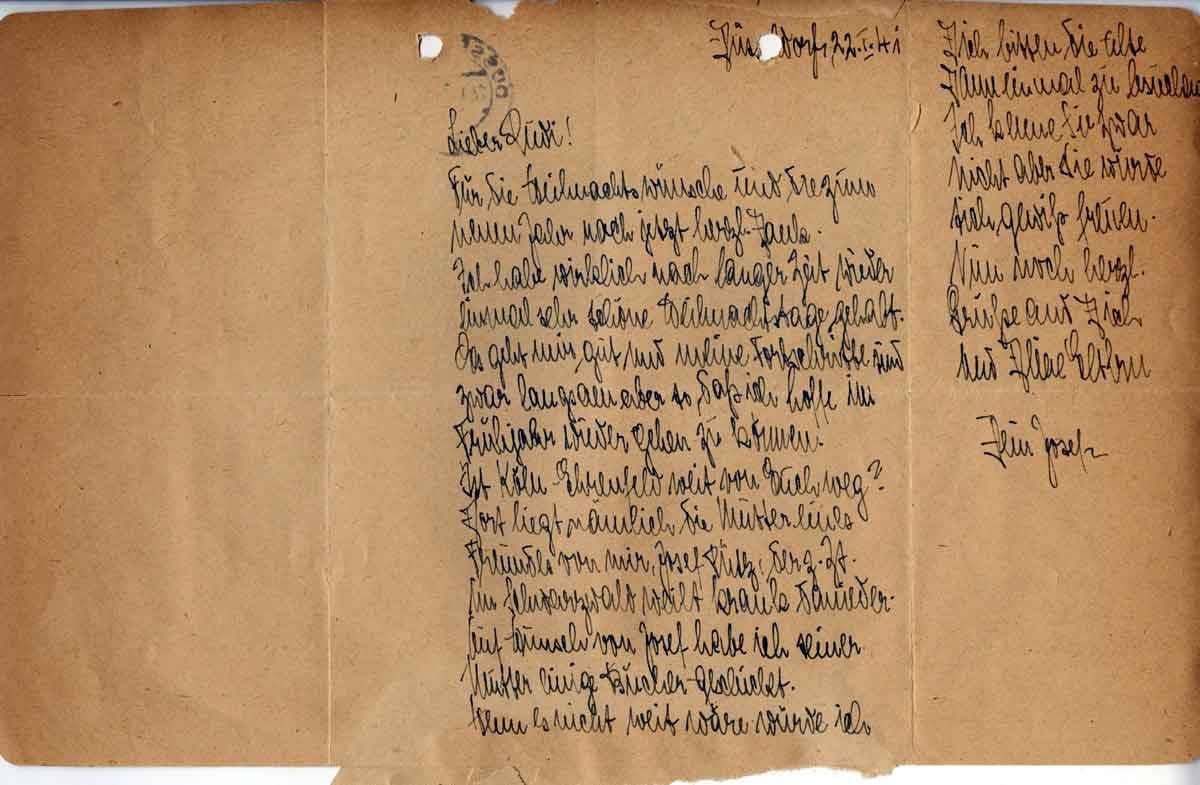 Düsseldorf, 22.I.41
Lieber Rudi!
Für die Weihnachtswünsche und die zum
neuen Jahr noch jetzt herzl. Dank.
Ich habe wirklich nach langer Zeit wieder
einmal sehr schöne Weihnachtstage gehabt.
Es geht mir gut und meine Fortschritte sind
zwar langsam aber so, daß ich hoffe im
Frühjahr wieder gehen zu können.
Ist Köln-Ehrenfeld weit von Euch weg?
Dort liegt nämlich die Mutter eines
Freundes von mir, Josef, der z. Zt.
im Schwarzwald weilt krank danieder.
Auf Wunsch von Josef habe ich seiner
Mutter einige Bücher geschickt.
Wenn es nicht weit wäre würde ich
Dich bitten die alte
Dame einmal zu besuchen
Ich kenne Sie zwar
nicht aber Sie würde
sich gewiß freuen.
Nun noch herzl.
Grüße auch Dich
und Deine Eltern
Dein Josef